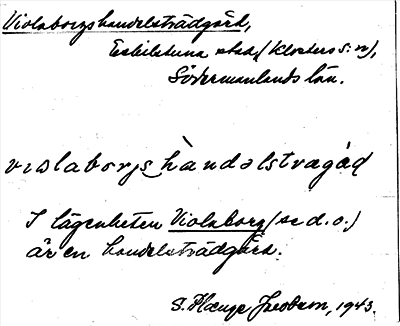 Violaborgs handelsträdgård,
Eskilstuna stad, (Klosters sn),
Södermanlands län.
vıɷlaborjs hàndəlstrəgåɖ
I lägenheten Violaborg (se d. o.)
är en handelsträdgård.
S. Hauge 1943.